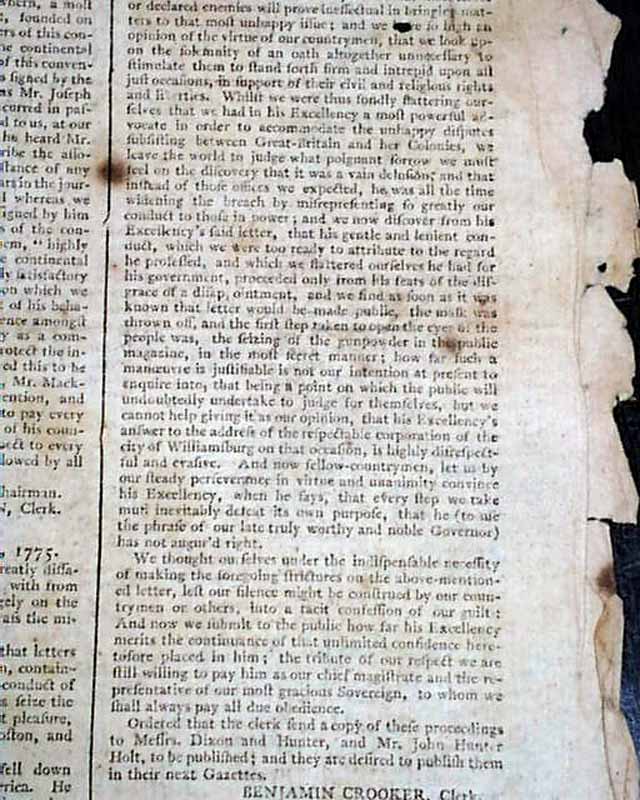 where, a most
, founded on
ers of this con-
he continental
of this conven-
s signed by the
as Mr. Joseph
curred in pas-
d to us, at our
he heard Mr.
ribe the asso-
stance of any
ars in the jour-
d whereas we
signed by him
s of the con-
em, " highly
e continental
ly satisfactory
on which we
e of his beha-
ence amongst
y as a com-
rotect the in-
ed this to be
, Mr. Mack-
ention, and
to pay every
of his coun-
uect to every
lowed by all
hairman.
N, Clerk.
, 1775.
reatly dissa-
with from
gely on the
rais the mi-
that letters
n, contain-
conduct of
s seize the
t pleasure,
oston, and
fell down
erica. He
or declared enemies will prove ineffectual in bringing mat-
ters to that most unhappy issue; and we have so high an
opinion of the virtue of our countrymen, that we look up-
on the solemnity of an oath altogether unnecessary to
stimulate them to stand forth firm and intrepid upon all
just occasions, in support of their civil and religious rights
and li erties. Whilst we were thus fondly flattering our-
selves that we had in his Excellency a most powerful ad-
vocate in order to accommodate the unhappy disputes
subsisting between Great-Britain and her Colonies, we
leave the world to judge what poignant sorrow we must
feel on the discovery that it was a vain delusion; and that
instead of those offices we expected, he was all the time
widening the breach by misrepresenting so greatly our
conduct to those in power; and we now discover from his
Excellency's said letter, that his gentle and lenient con-
duct, which we were too ready to attribute to the regard
he professed, and which we flattered ourselves he had for
his government, proceeded only from his fears of the dis-
grace of a disap, ointment, and we find as soon as it was
known that letter would be made public, the mask was
thrown off, and the first step taken to open the eyes of the
people was, the seizing of the gunpowder in the public
magazine, in the most secret manner; how far such a
manœuvre is justifiable is not our intention at present to
enquire into, that being a point on which the public will
undoubtedly undertake to judge for themselves, but we
cannot help giving it as our opinion, that his Excellency's
answer to the address of the respectable corporation of the
city of Williamsburg on that occasion, is highly disrespect-
ful and evasive. And now fellow-countrymen, let us by
our steady perseverance in virtue and unanimity convince
his Excellency, when he says, that every step we take
must inevitably defeat its own purpose, that he (to use
the phrase of our late truly worthy and noble Governor)
has not augur'd right.
We thought ourselves under the indispensable necessity
of making the foregoing strictures on the above-mention-
ed letter, lest our silence might be construed by our coun-
trymen or others, into a tacit confession of our guilt:
And now we submit to the public how far his Excellency
merits the continuance of that unlimited confidence here-
tofore placed in him; the tribute of our respect we are
still willing to pay him as our chief magistrate and the re-
presentative of our most gracious Sovereign, to whom we
shall always pay all due obedience.
Ordered that the clerk send a copy of these proceedings
to Messrs. Dixon and Hunter, and Mr. John Hunter
Holt, to be published; and they are desired to publish them
in their next Gazettes.
BENJAMIN CROOKER, Clerk.